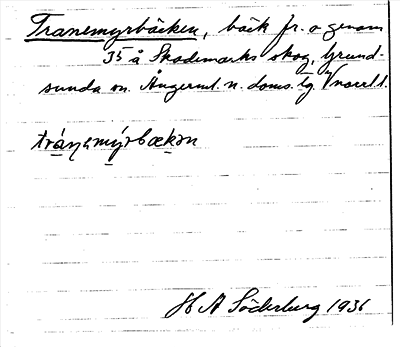 Tranemyrbäcken, bäck fr. o genom
35 å Skademarks skog, Grund-
sunda sn. Ångerml. n. doms. lg. V norrl l.
tránɐmýrbækən
H A Söderburg 1936